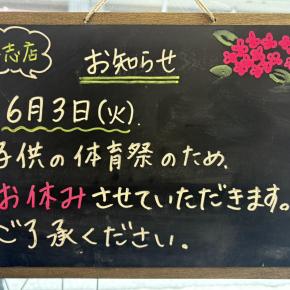 志店
お知らせ
6月3日(火).
子供の体育祭のため、
お休みさせていただきます。
ご了承ください。